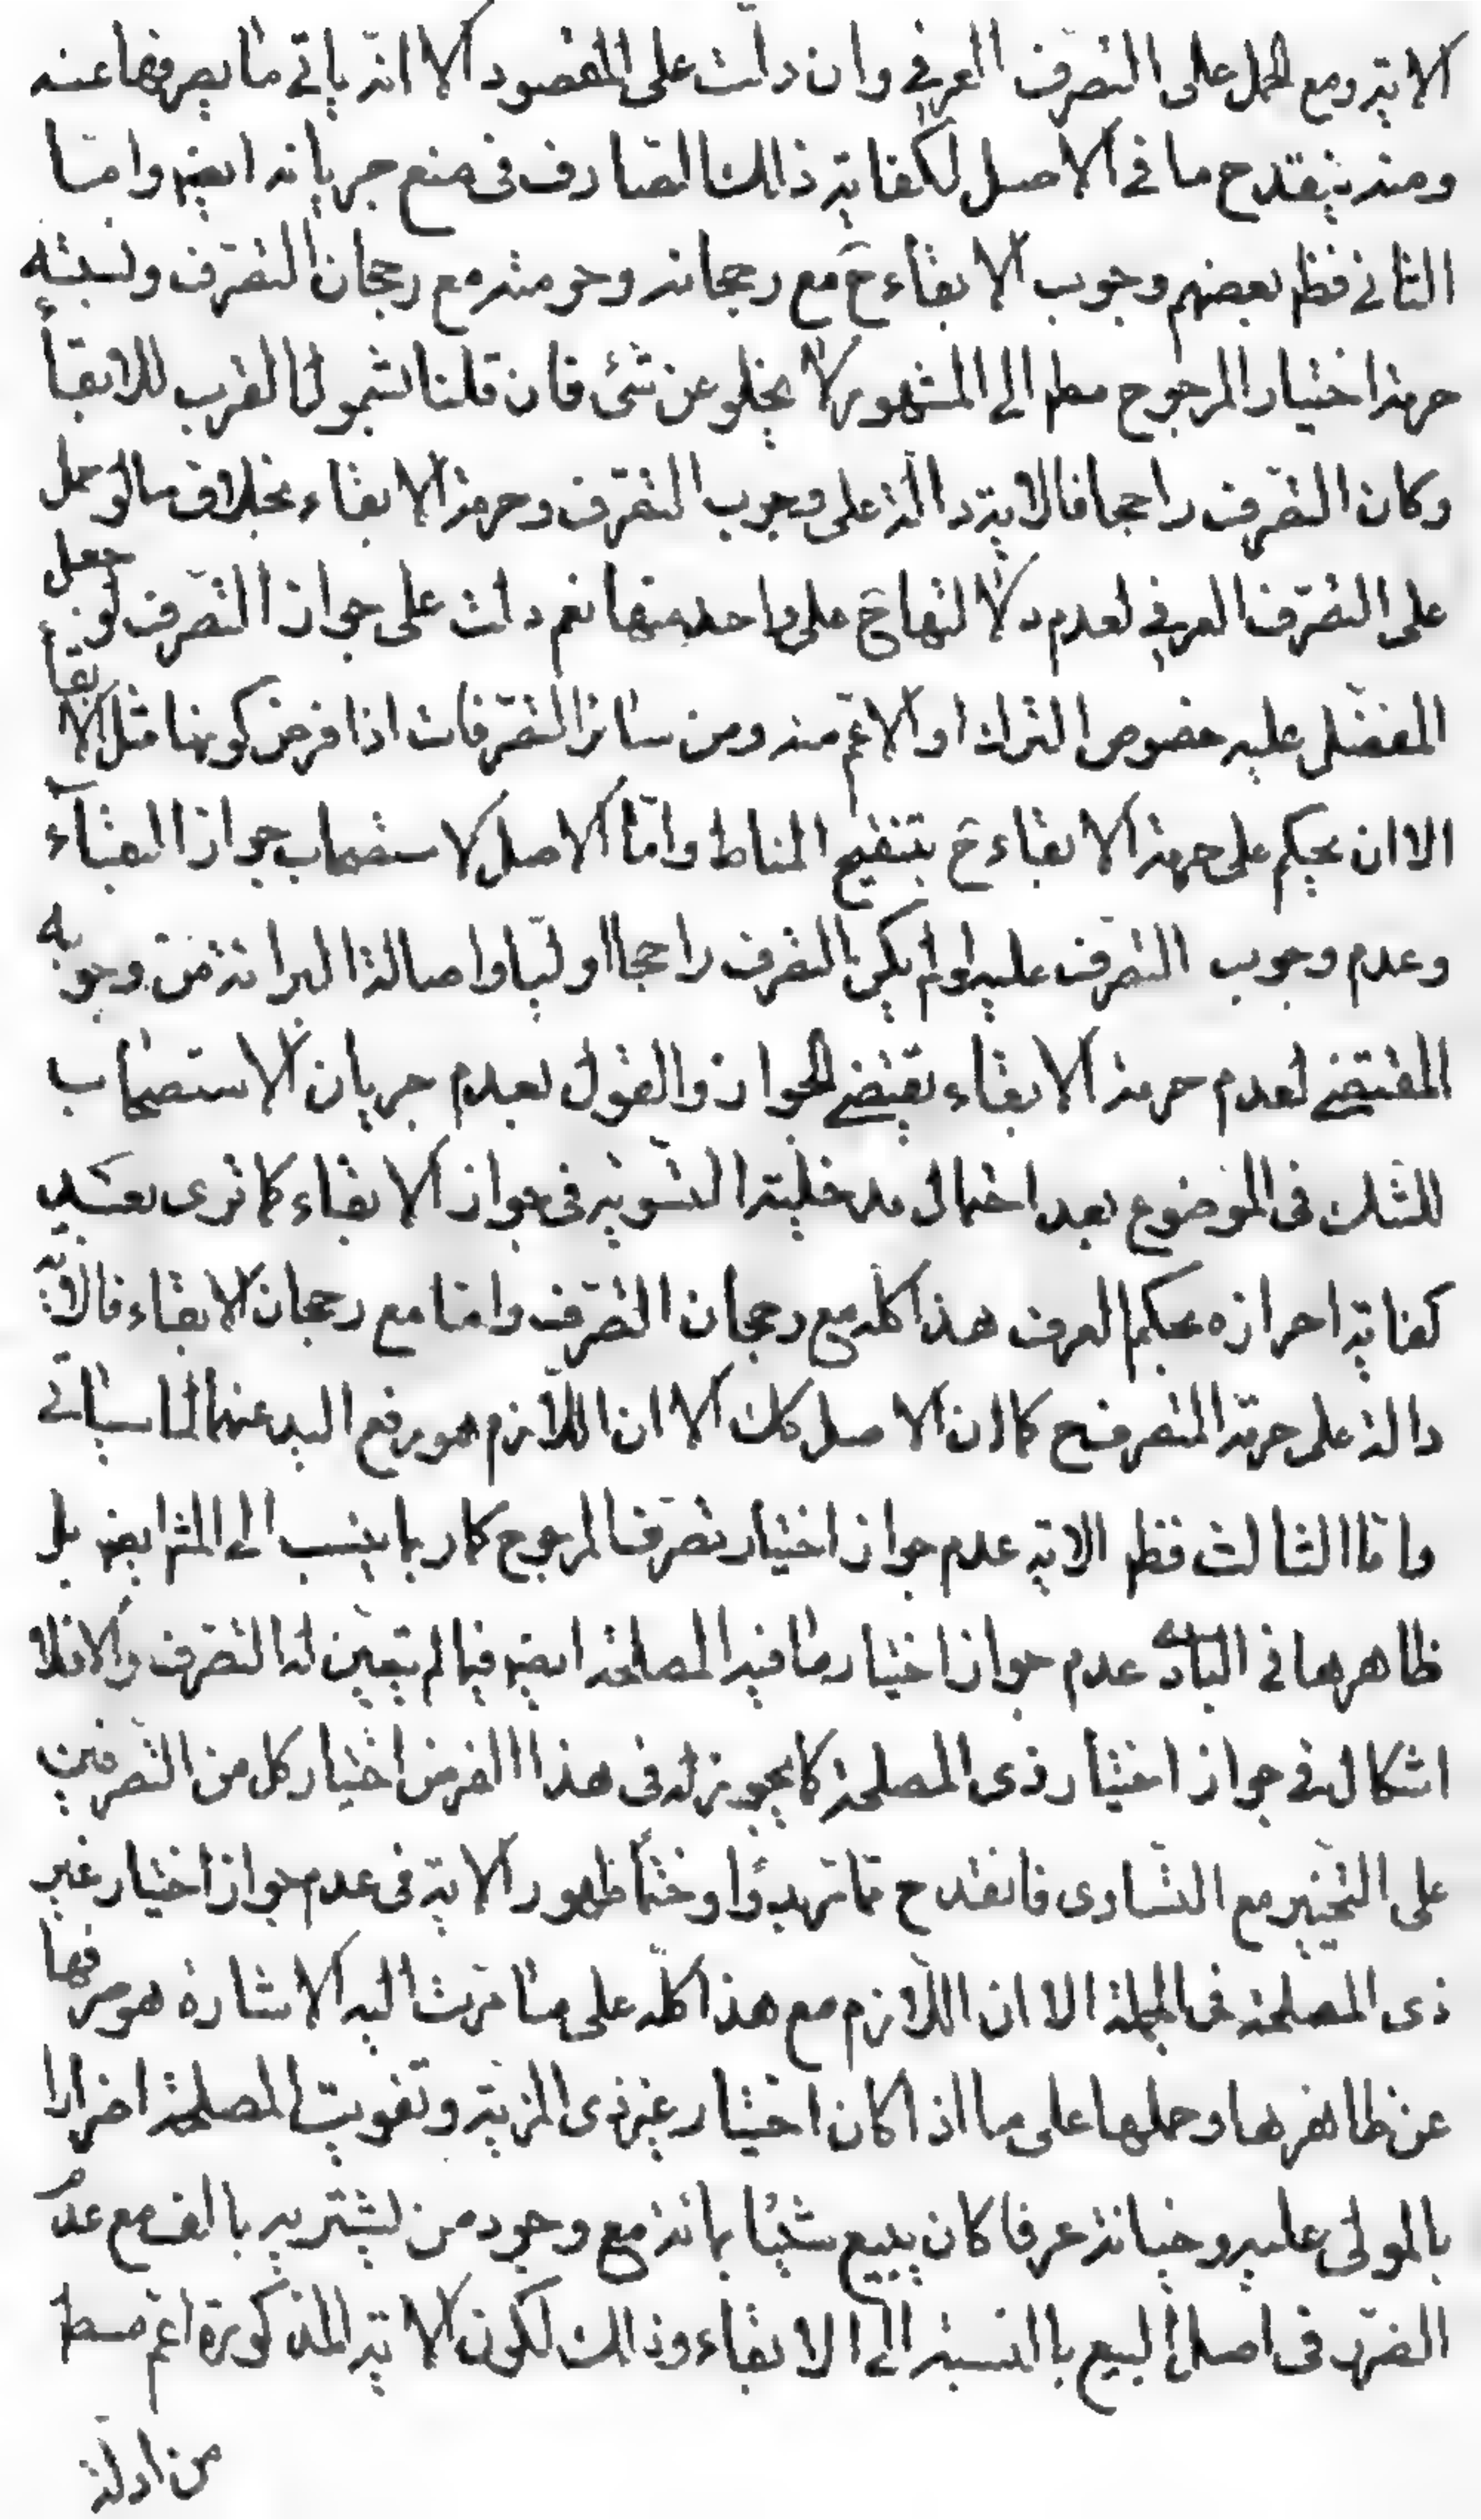 الاية ومع الحمل على التصرف العرفي وان دلت على المقصود الا انه ياتي ما يصرفها عنه
ومنه ينقدح ما في الاصل لكفاية ذلك الصارف في منع جريانه ايض واما
الثاني فظ بعضهم وجوب الابقاء ح مع رجحانه وحرمته مع رجحان التصرف ونسبته
حرمة اختيار المرجوح مط الى المشهور لا يخلو عن شئ فان قلنا بشمول القرب للابقاء
وكان التصرف راجحا فالاية دالة على وجوب التصرف وحرمة الابقاء بخلاف ما لو حمل
على التصرف العرفي لعدم دلالتها ح على واحد منهما نعم دلت على جواز التصرف لو جعل
المفضل عليه خصوص الترك او الاعم منه ومن سائر التصرفات اذا فرض كونها مثل الابقاء
الا ان يحكم على حرمة الابقاء ح بتنقيح المناط واما الاصل لاستصحاب جواز البقاء
وعدم وجوب التصرف عليه لو لم يكن التصرف راجحا اوليا واصالة البرائة من وجوبه
المقتضي لعدم حرمة الابقاء يقتضي الجواز والقول بعدم جريان الاستصحاب
للشك في الموضوع بعد احتمال مدخلية التسوية في جواز الابقاء كما ترى بعد
كفاية احرازه بحكم العرف هذا كله مع رجحان التصرف واما مع رجحان الابقاء فالاية
دالة على حرمة التصرف ح كما ان الاصل كك الا ان اللازم هو رفع اليد عنهما لما سياتي
واما الثالث فظ الاية عدم جواز اختيار تصرف المرجوح كما ربما ينسب الى المش ايض بل
ظاهرها في البادي عدم جواز اختيار ما فيه المصلحة ايض فيما لم يتعين له التصرف والا فلا
اشكال في جواز اختيار ذي المصلحة كما يجوز له في هذا الفرض اختيار كل من التصرفين
على التخيير مع التساوي فانقدح مما مر بدؤا وختما ظهور الاية في عدم جواز اختيار غير
ذي المصلحة في الجملة الا ان اللازم مع هذا كله على ما مرت اليه الاشارة هو صرفها
عن ظاهرها وحملها على ما اذا كان اختيار غير ذي المزية وتفويت المصلحة اضرارا
بالمولى عليه وخيانة عرفا كان يبيع شيئا بمائة مع وجود من يشتريه بالف مع عدم
الضرر في اصل البيع بالنسبة الى الابقاء وذلك لكون الاية المذكورة اعم مط
من ادلة